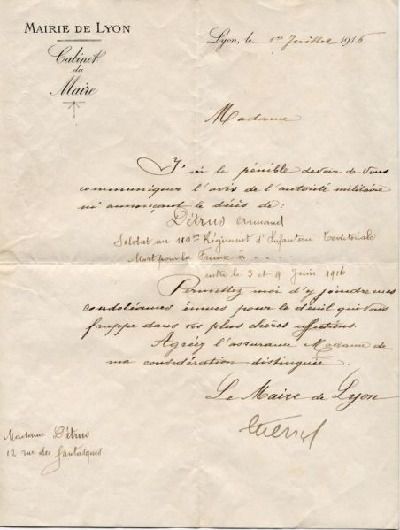 MAIRIE DE LYON
Cabinet
du
Maire
Lyon, le 1er Juillet 1916
Madame
J'ai le pénible devoir de vous
communiquer l'avis de l'autorité militaire
m'annonçant le décès de:
Détrus Armand
Soldat au Régiment d'Infanterie Territoriale
Mort pour la France à
entre le 3 et 9 Juin 1916
Permettez moi d'y joindre mes
condoléances émues pour le deuil qui vous
frappe dans vos plus chères affections.
Agréez l'assurance Madame de
ma considération distinguée.
Le Maire de Lyon
Madame Détrus
12 rue des Fantasques